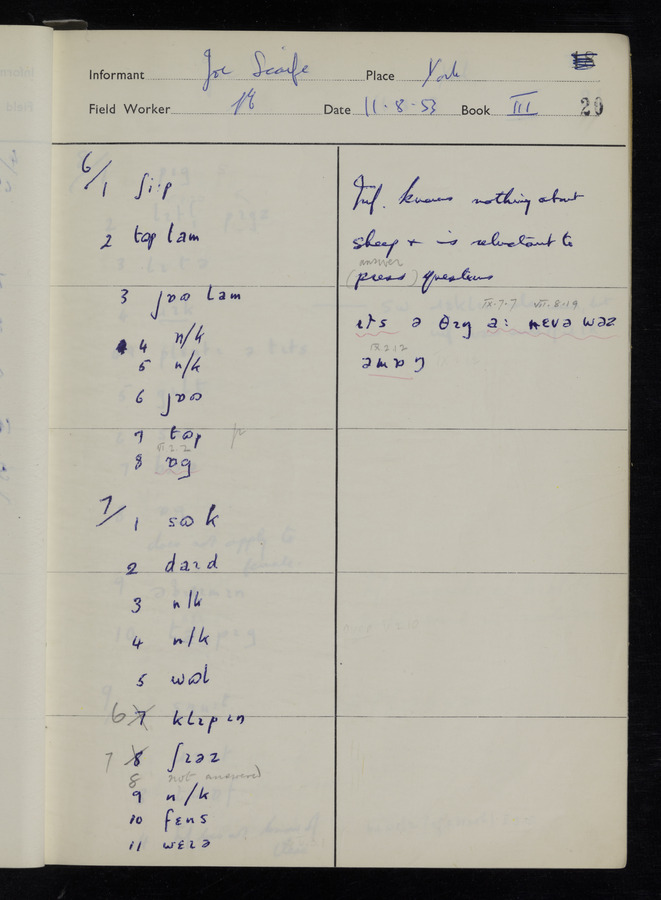 Informant Joe Scaife Place York
Field Worker Date 11-8-53 Book III 29
6/1 ʃi:p
2 tɷp lam
3 jɷɷ lam
4 n/k
5 n/k
6 jɷɷ
7 tɷp
VI 2 2
8 ɒg
7/1 sɷk
2 daɪd
3 n/k
4 n/k
5 wɷl
6 7 klɪpɪn
7 8 ʃɪəz
8 not answered
9 n/k
10 fɛns
11 wɛɪə
Inf. knows nothing about
sheep + is reluctant to
answer
(press) questions
IX-7-7 VII-8-19
ɪts ə θɪŋ a: nɛvə wəz
IX 2 12
əmɒŋ